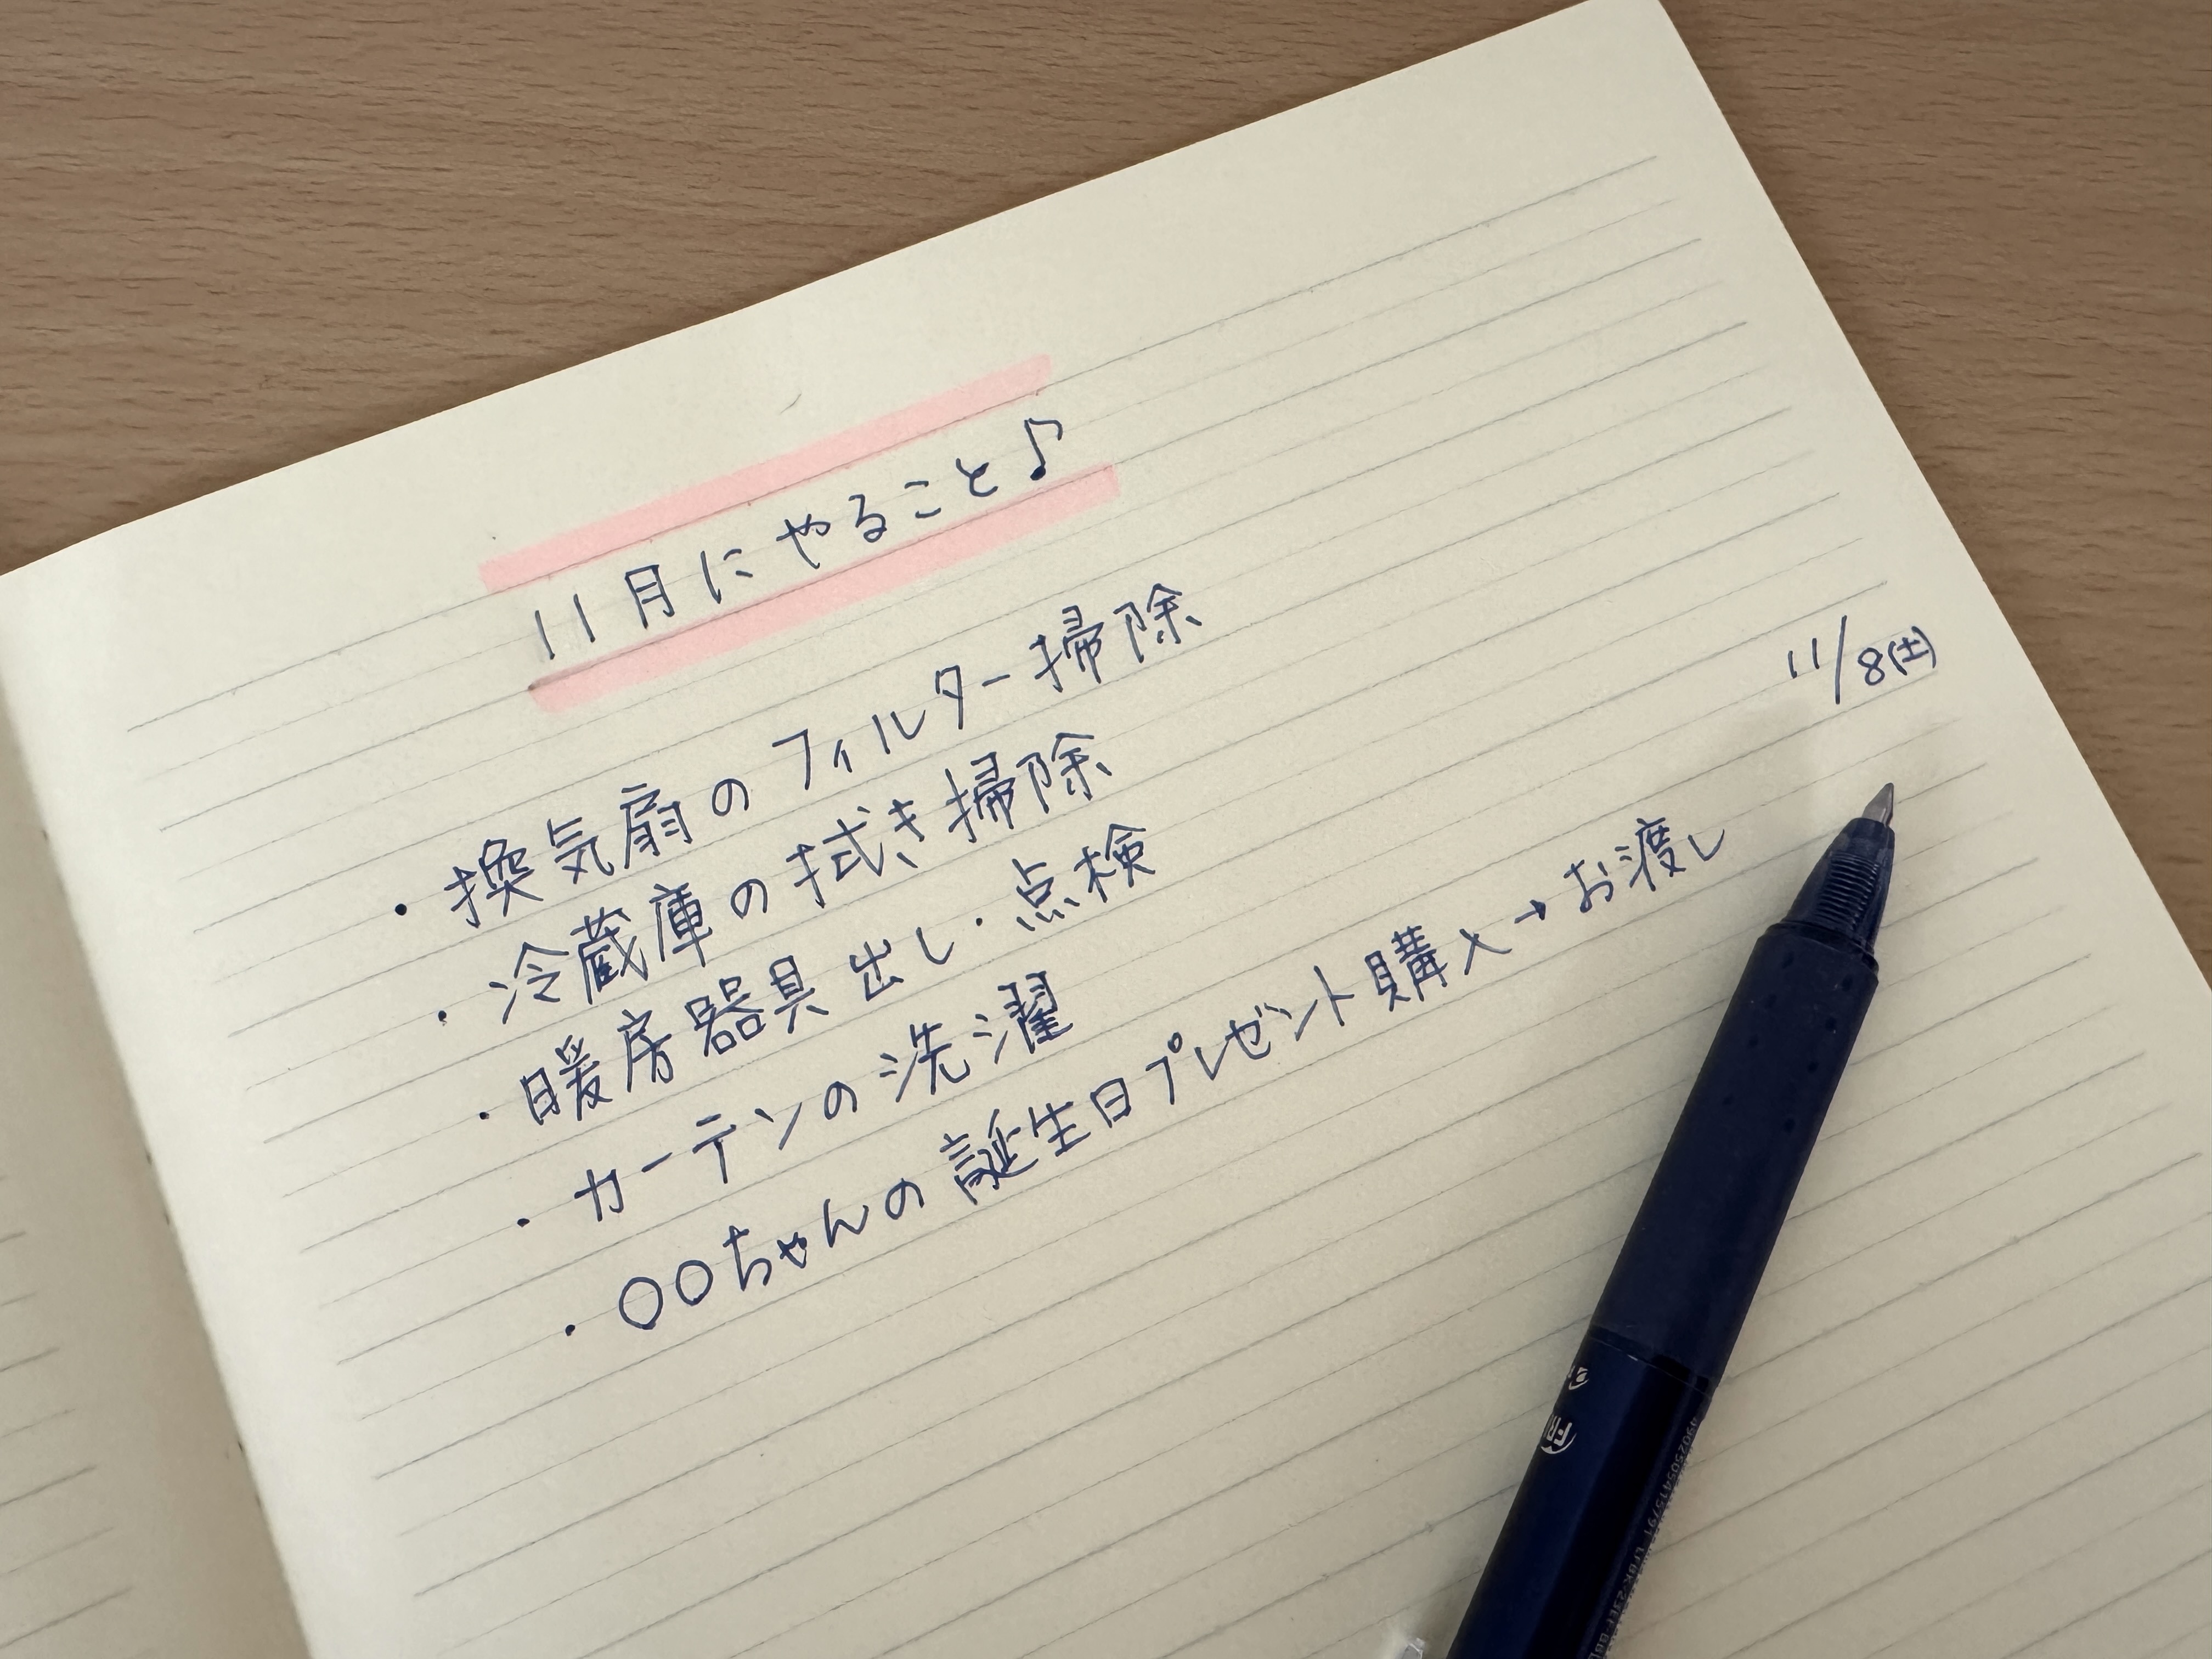 11月にやること♪
・換気扇のフィルター掃除
・冷蔵庫の拭き掃除
・暖房器具出し・点検
・カーテンの洗濯
・〇〇ちゃんの誕生日プレゼント購入→お渡し
11/8(土)